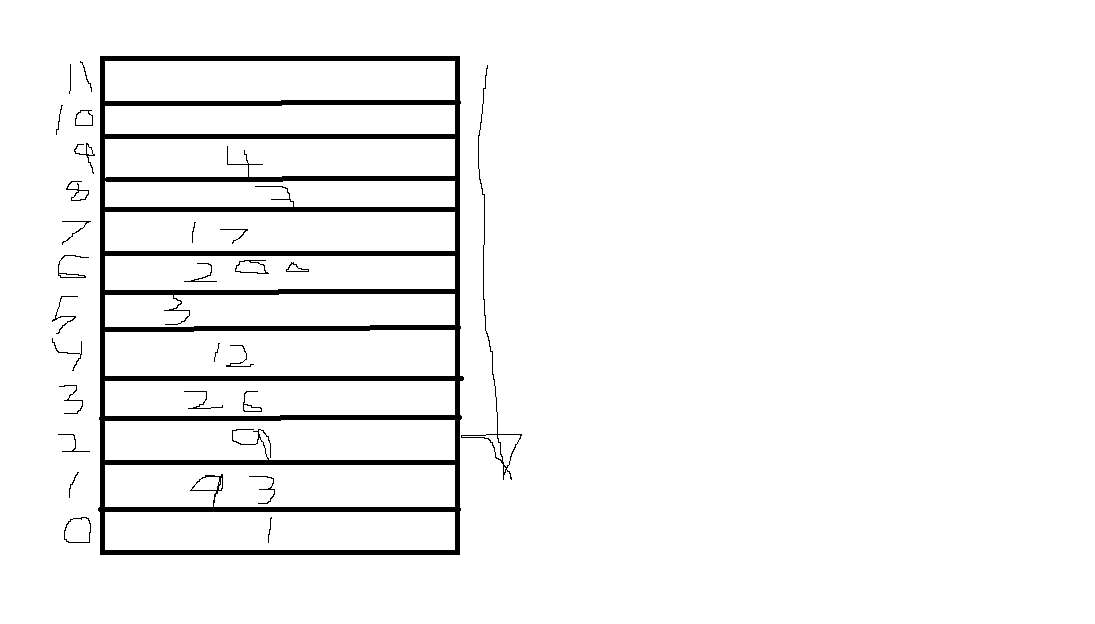 11
10
9 4
8
7 17
6 200
5 3
4 12
3 26
2 9
1 93
0 1